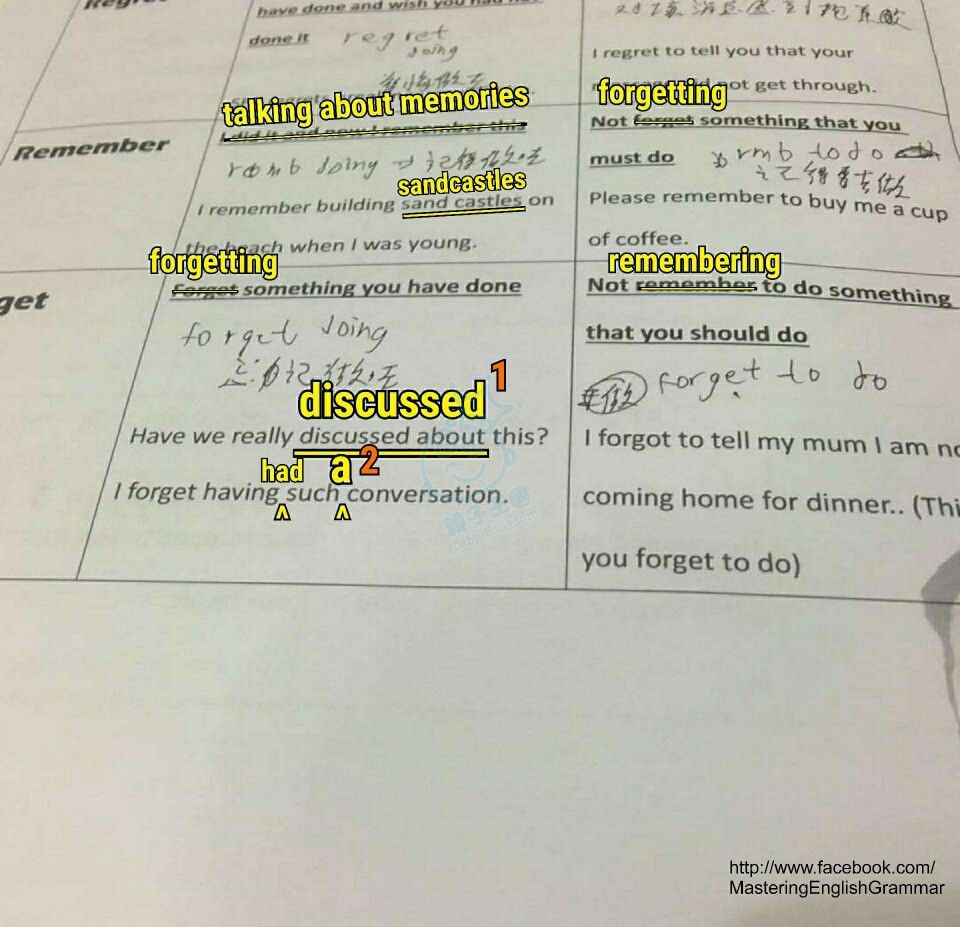 have done and wish you had not
done it
regret
doing
I regret to tell you that your
not get through.
Remember
talking about memories
I did it and now I remember this
rmb doing → 記得做咗
sandcastles
I remember building sand castles on
the beach when I was young.
forgetting
Not forget something that you
must do
rmb to do
記得要去做
Please remember to buy me a cup
of coffee.
get
forgetting
Forget something you have done
forget doing
忘記做咗
discussed 1
Have we really discussed about this?
had a 2
I forget having such conversation.
^ ^
remembering
Not remember to do something
that you should do
forget to do
I forgot to tell my mum I am no
coming home for dinner.. (Thi
you forget to do)
親子王國
Baby Kingdom
http://www.facebook.com/
MasteringEnglishGrammar